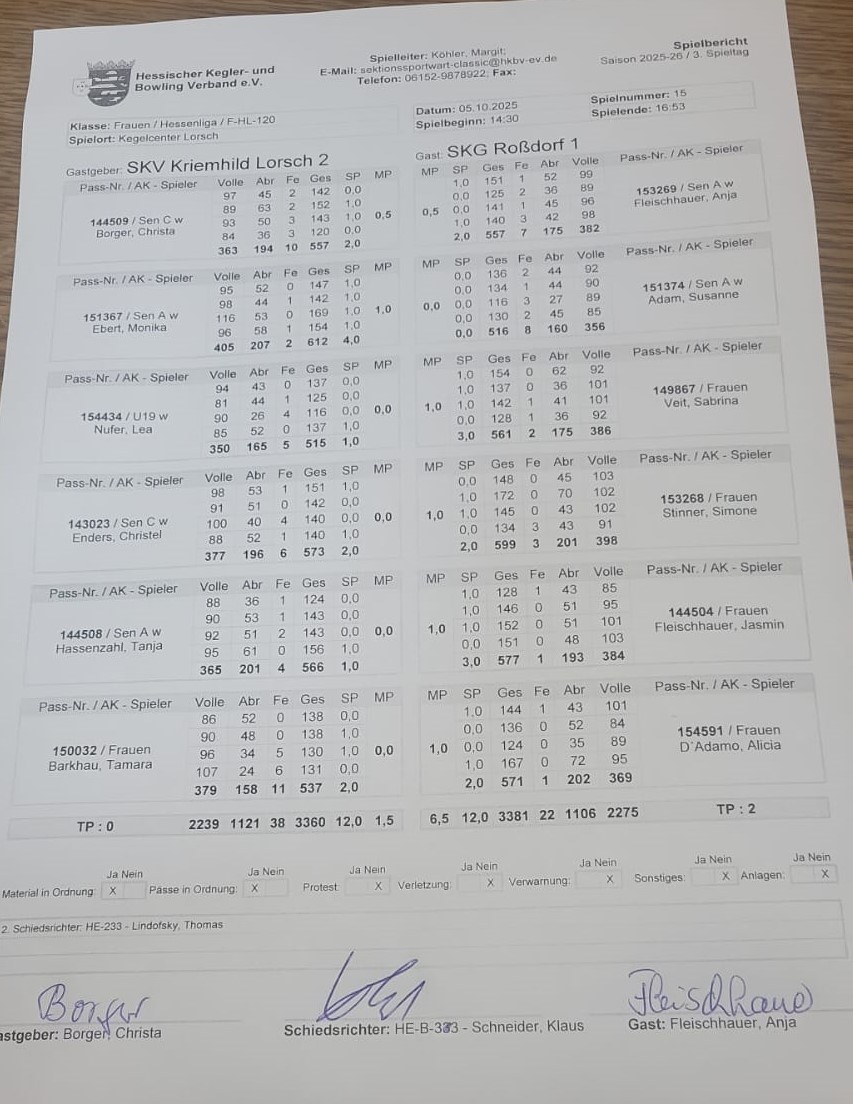 Hessischer Kegler- und
Bowling Verband e.V.
Spielleiter: Köhler, Margit;
E-Mail: sektionssportwart-classic@hkbv-ev.de
Telefon: 06152-9878922; Fax:
Spielbericht
Saison 2025-26 / 3. Spieltag
Klasse: Frauen / Hessenliga / F-HL-120
Spielort: Kegelcenter Lorsch
Datum: 05.10.2025 Spielnummer: 15
Spielbeginn: 14:30 Spielende: 16:53
Gastgeber: SKV Kriemhild Lorsch 2 Gast: SKG Roßdorf 1
Pass-Nr. / AK - Spieler Volle Abr Fe Ges SP MP MP SP Ges Fe Abr Volle Pass-Nr. / AK - Spieler
97 45 2 142 0,0 1,0 151 1 52 99
144509 / Sen C w 89 63 2 152 1,0 0,0 125 2 36 89 153269 / Sen A w
Borger, Christa 93 50 3 143 1,0 0,5 0,5 0,0 141 1 45 96 Fleischhauer, Anja
84 36 3 120 0,0 1,0 140 3 42 98
363 194 10 557 2,0 2,0 557 7 175 382
Pass-Nr. / AK - Spieler Volle Abr Fe Ges SP MP MP SP Ges Fe Abr Volle Pass-Nr. / AK - Spieler
95 52 0 147 1,0 0,0 136 2 44 92
151367 / Sen A w 98 44 1 142 1,0 0,0 134 1 44 90 151374 / Sen A w
Ebert, Monika 116 53 0 169 1,0 1,0 0,0 0,0 116 3 27 89 Adam, Susanne
96 58 1 154 1,0 0,0 130 2 45 85
405 207 2 612 4,0 0,0 516 8 160 356
Pass-Nr. / AK - Spieler Volle Abr Fe Ges SP MP MP SP Ges Fe Abr Volle Pass-Nr. / AK - Spieler
94 43 0 137 0,0 1,0 154 0 62 92
154434 / U19 w 81 44 1 125 0,0 1,0 137 0 36 101 149867 / Frauen
Nufer, Lea 90 26 4 116 0,0 0,0 1,0 1,0 142 1 41 101 Veit, Sabrina
85 52 0 137 1,0 0,0 128 1 36 92
350 165 5 515 1,0 3,0 561 2 175 386
Pass-Nr. / AK - Spieler Volle Abr Fe Ges SP MP MP SP Ges Fe Abr Volle Pass-Nr. / AK - Spieler
98 53 1 151 1,0 0,0 148 0 45 103
143023 / Sen C w 91 51 0 142 0,0 1,0 172 0 70 102 153268 / Frauen
Enders, Christel 100 40 4 140 0,0 0,0 1,0 1,0 145 0 43 102 Stinner, Simone
88 52 1 140 1,0 0,0 134 3 43 91
377 196 6 573 2,0 2,0 599 3 201 398
Pass-Nr. / AK - Spieler Volle Abr Fe Ges SP MP MP SP Ges Fe Abr Volle Pass-Nr. / AK - Spieler
88 36 1 124 0,0 1,0 128 1 43 85
144508 / Sen A w 90 53 1 143 0,0 1,0 146 0 51 95 144504 / Frauen
Hassenzahl, Tanja 92 51 2 143 0,0 0,0 1,0 1,0 152 0 51 101 Fleischhauer, Jasmin
95 61 0 156 1,0 0,0 151 0 48 103
365 201 4 566 1,0 3,0 577 1 193 384
Pass-Nr. / AK - Spieler Volle Abr Fe Ges SP MP MP SP Ges Fe Abr Volle Pass-Nr. / AK - Spieler
86 52 0 138 0,0 1,0 144 1 43 101
150032 / Frauen 90 48 0 138 1,0 0,0 136 0 52 84 154591 / Frauen
Barkhau, Tamara 96 34 5 130 1,0 0,0 1,0 0,0 124 0 35 89 D´Adamo, Alicia
107 24 6 131 0,0 1,0 167 0 72 95
379 158 11 537 2,0 2,0 571 1 202 369
TP : 0 2239 1121 38 3360 12,0 1,5 6,5 12,0 3381 22 1106 2275 TP : 2
Ja Nein Ja Nein Ja Nein Ja Nein Ja Nein Ja Nein Ja Nein
Material in Ordnung: X Pässe in Ordnung: X Protest: X Verletzung: X Verwarnung: X Sonstiges: X Anlagen: X
2. Schiedsrichter: HE-233 - Lindofsky, Thomas
Borger Fleischhauer
astgeber: Borger, Christa Schiedsrichter: HE-B-333 - Schneider, Klaus Gast: Fleischhauer, Anja